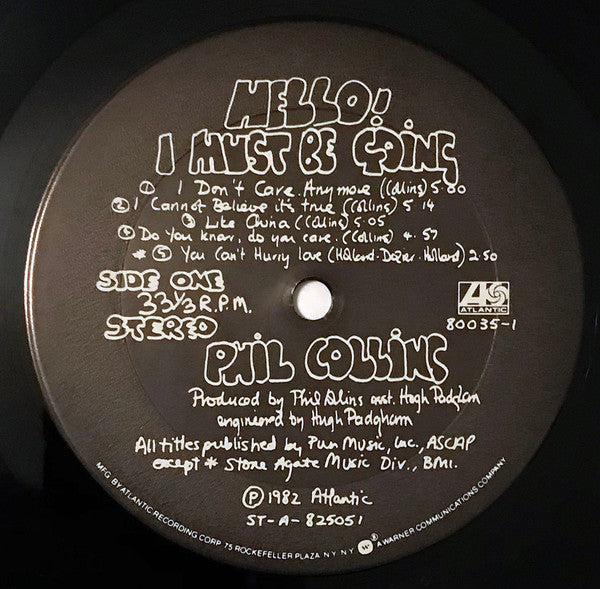 HELLO!
I MUST BE GOING
① I Don't Care Anymore (Collins) 5.00
② I Cannot Believe it's true (Collins) 5 14
③ Like China (Collins) 5.05
④ Do You know, do you care. (Collins) 4.57
* ⑤ You Can't Hurry love (Holland-Dozier-Holland) 2.50
SIDE ONE
33 1/3 R.P.M.
STEREO
ATLANTIC
80035-1
PHIL COLLINS
Produced by Phil Collins asst. Hugh Padgham
engineered by Hugh Padgham
All titles published by Pun Music, Inc., ASCAP
except * Stone Agate Music Div., BMI.
Ⓟ 1982 Atlantic
ST-A-825051
MFG. BY ATLANTIC RECORDING CORP. 75 ROCKEFELLER PLAZA NY NY W ® A WARNER COMMUNICATIONS COMPANY